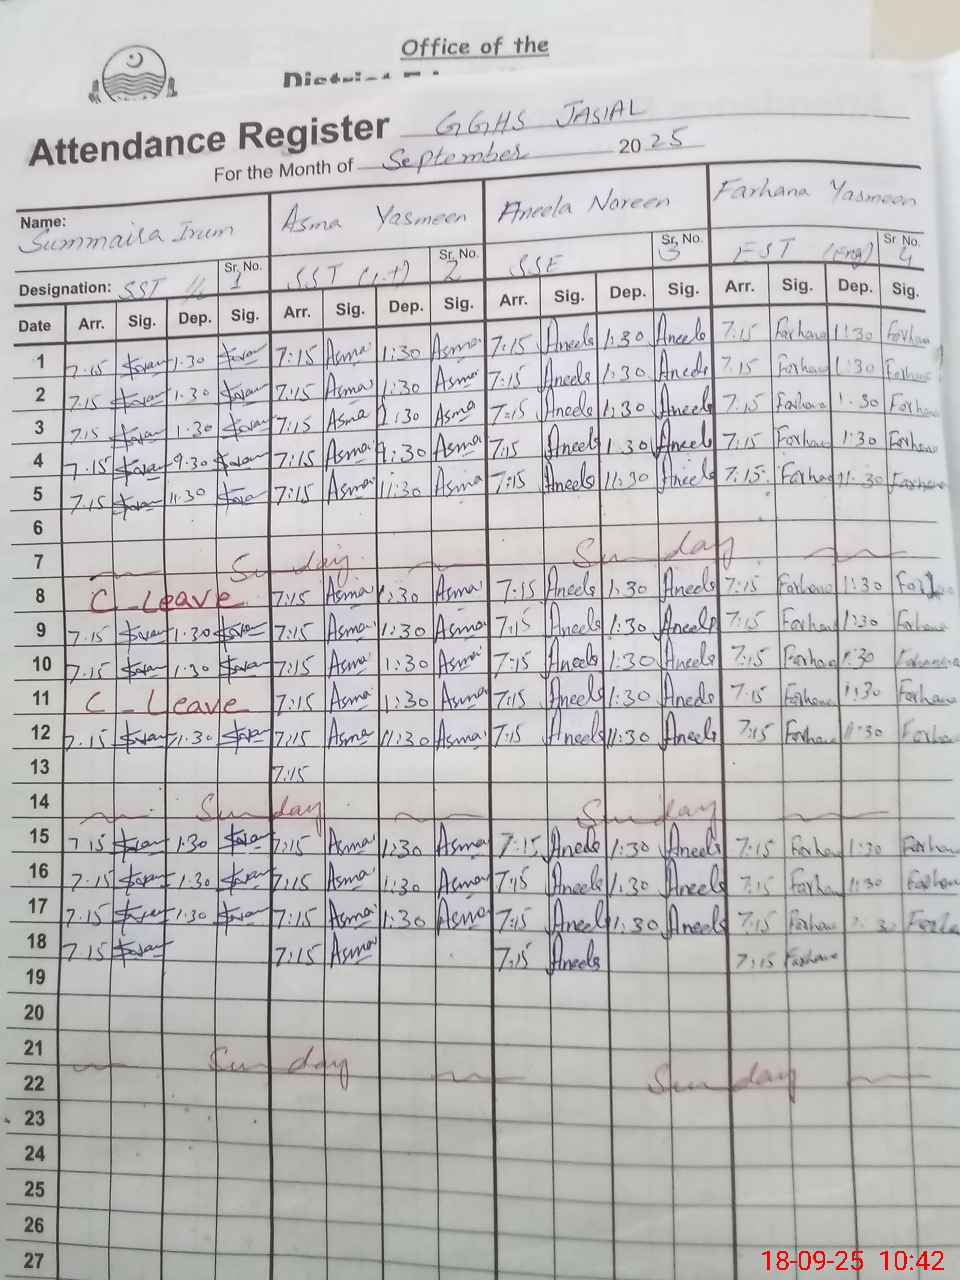 Office of the
Attendance Register GGHS JASIAL
For the Month of September 2025
Name: Summaira Irum Asma Yasmeen Aneela Noreen Farhana Yasmeen
Sr. No. 1 Sr. No. 2 Sr. No. 3 Sr No. 4
Designation: SST SST (I.T) SSE EST (Eng)
Date Arr. Sig. Dep. Sig. Arr. Sig. Dep. Sig. Arr. Sig. Dep. Sig. Arr. Sig. Dep. Sig.
1 7:15 1:30 7:15 Asma 1:30 Asma 7:15 Aneela 1:30 Aneela 7:15 Farhana 1:30 Farhana
2 7:15 1:30 7:15 Asma 1:30 Asma 7:15 Aneela 1:30 Aneela 7:15 Farhana 1:30 Farhana
3 7:15 1:30 7:15 Asma 1:30 Asma 7:15 Aneela 1:30 Aneela 7:15 Farhana 1:30 Farhana
4 7:15 9:30 7:15 Asma 9:30 Asma 7:15 Aneela 1:30 Aneela 7:15 Farhana 1:30 Farhana
5 7:15 11:30 7:15 Asma 11:30 Asma 7:15 Aneela 11:30 Aneela 7:15 Farhana 11:30 Farhana
6
7 Sunday Sunday
8 C - Leave 7:15 Asma 1:30 Asma 7:15 Aneela 1:30 Aneela 7:15 Farhana 1:30
9 7:15 1:30 7:15 Asma 1:30 Asma 7:15 Aneela 1:30 Aneela 7:15 Farhana 1:30 Farhana
10 7:15 1:30 7:15 Asma 1:30 Asma 7:15 Aneela 1:30 Aneela 7:15 Farhana 1:30 Farhana
11 C - Leave 7:15 Asma 1:30 Asma 7:15 Aneela 1:30 Aneela 7:15 Farhana 1:30 Farhana
12 7:15 11:30 7:15 Asma 11:30 Asma 7:15 Aneela 11:30 Aneela 7:15 Farhana 11:30 Farhana
13 7:15
14 Sunday Sunday
15 7:15 1:30 7:15 Asma 1:30 Asma 7:15 Aneela 1:30 Aneela 7:15 Farhana 1:30 Farhana
16 7:15 1:30 7:15 Asma 1:30 Asma 7:15 Aneela 1:30 Aneela 7:15 Farhana 1:30 Farhana
17 7:15 1:30 7:15 Asma 1:30 Asma 7:15 Aneela 1:30 Aneela 7:15 Farhana 1:30 Farhana
18 7:15 7:15 Asma 7:15 Aneela 7:15 Farhana
19
20
21 Sunday Sunday
22
23
24
25
26
27
18-09-25 10:42